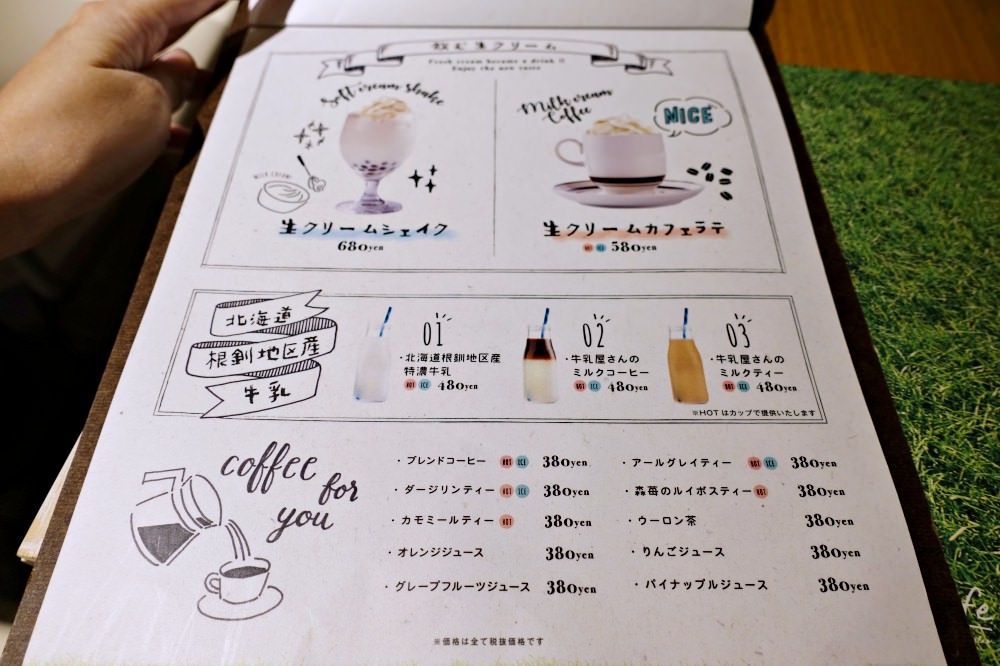 飲む生クリーム
Fresh cream became a drink !!
Enjoy the new taste
Soft cream shake
MILK CREAM
生クリームシェイク
680yen
Milk cream
Coffee
NICE
生クリームカフェラテ
HOT ICE 580yen
北海道
根釧地区産
牛乳
01
・北海道根釧地区産
特濃牛乳
HOT ICE 480yen
02
・牛乳屋さんの
ミルクコーヒー
HOT ICE 480yen
03
・牛乳屋さんの
ミルクティー
HOT ICE 480yen
※HOTはカップで提供いたします
coffee
for
you
・ブレンドコーヒー HOT ICE 380yen
・ダージリンティー HOT ICE 380yen
・カモミールティー HOT 380yen
・オレンジジュース 380yen
・グレープフルーツジュース 380yen
・アールグレイティー HOT ICE 380yen
・森苺のルイボスティー HOT 380yen
・ウーロン茶 380yen
・りんごジュース 380yen
・パイナップルジュース 380yen
※価格は全て税抜価格です